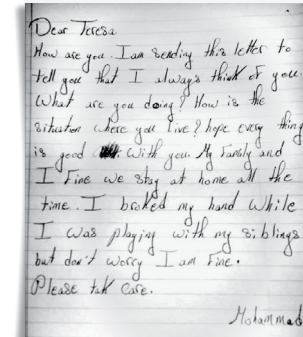 Dear Teresa
How are you. I am sending this letter to
tell you that I always think of you
What are you doing? How is the
situation where you live? hope every thing
is good with you. My Family and
I Fine we stay at home all the
time. I broked my hand while
I was playing with my siblings
but don't worry I am Fine.
Please tak care.
Mohammad